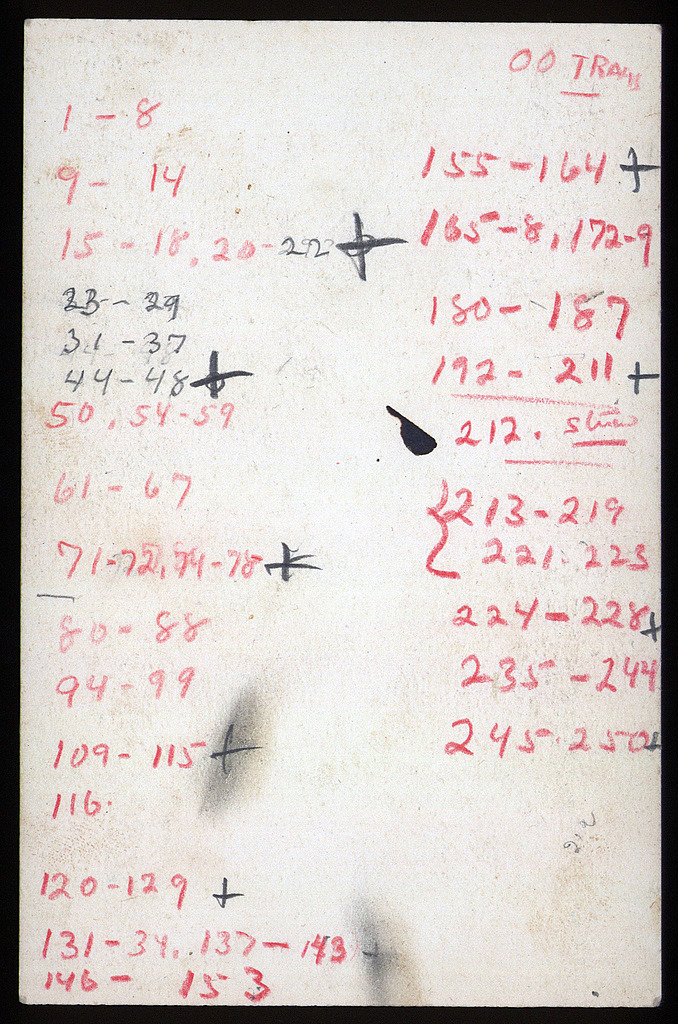 00 TRAIN
1 - 8
9 - 14
15 - 18, 20 - 22 +
23 - 29
31 - 37
44 - 48 +
50, 54 - 59
61 - 67
71 - 72, 74 - 78 +
80 - 88
94 - 99
109 - 115 +
116.
120 - 129 +
131 - 34, 137 - 143 -
146 - 153
155 - 164 +
165 - 8, 172 - 9
180 - 187
192 - 211 +
212.
{ 213 - 219
221 . 223
224 - 228 +
235 - 244
245 . 250 +